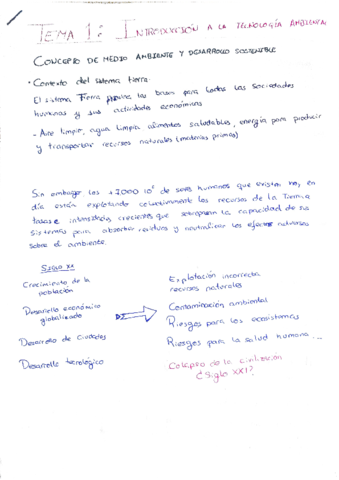 TEMA 1: INTRODUCCIÓN A LA TECNOLOGÍA AMBIENTAL
CONCEPTO DE MEDIO AMBIENTE Y DESARROLLO SOSTENIBLE
• Contexto del sistema tierra:
El sistema Tierra provee las bases para todas las sociedades
humanas y sus actividades económicas
- Aire limpio, agua limpia alimentos saludables, energía para producir
y transportar recursos naturales (materias primas)
Sin embargo los +7.000 10⁶ de seres humanos que existen hoy en
día están explotando colectivamente los recursos de la Tierra a
tasas e intensidades crecientes que sobrepasan la capacidad de sus
sistemas para absorber residuos y neutralizar los efectos
sobre el ambiente.
SIGLO XX
Crecimiento de la
población
Desarrollo económico
globalizado
Desarrollo de Ciudades
Desarrollo tecnológico
Explotación incorrecta
recursos naturales
Contaminación ambiental
Riesgos para los ecosistemas
Riesgos para la salud humana ...
Colapso de la civilización
¿Siglo XXI?